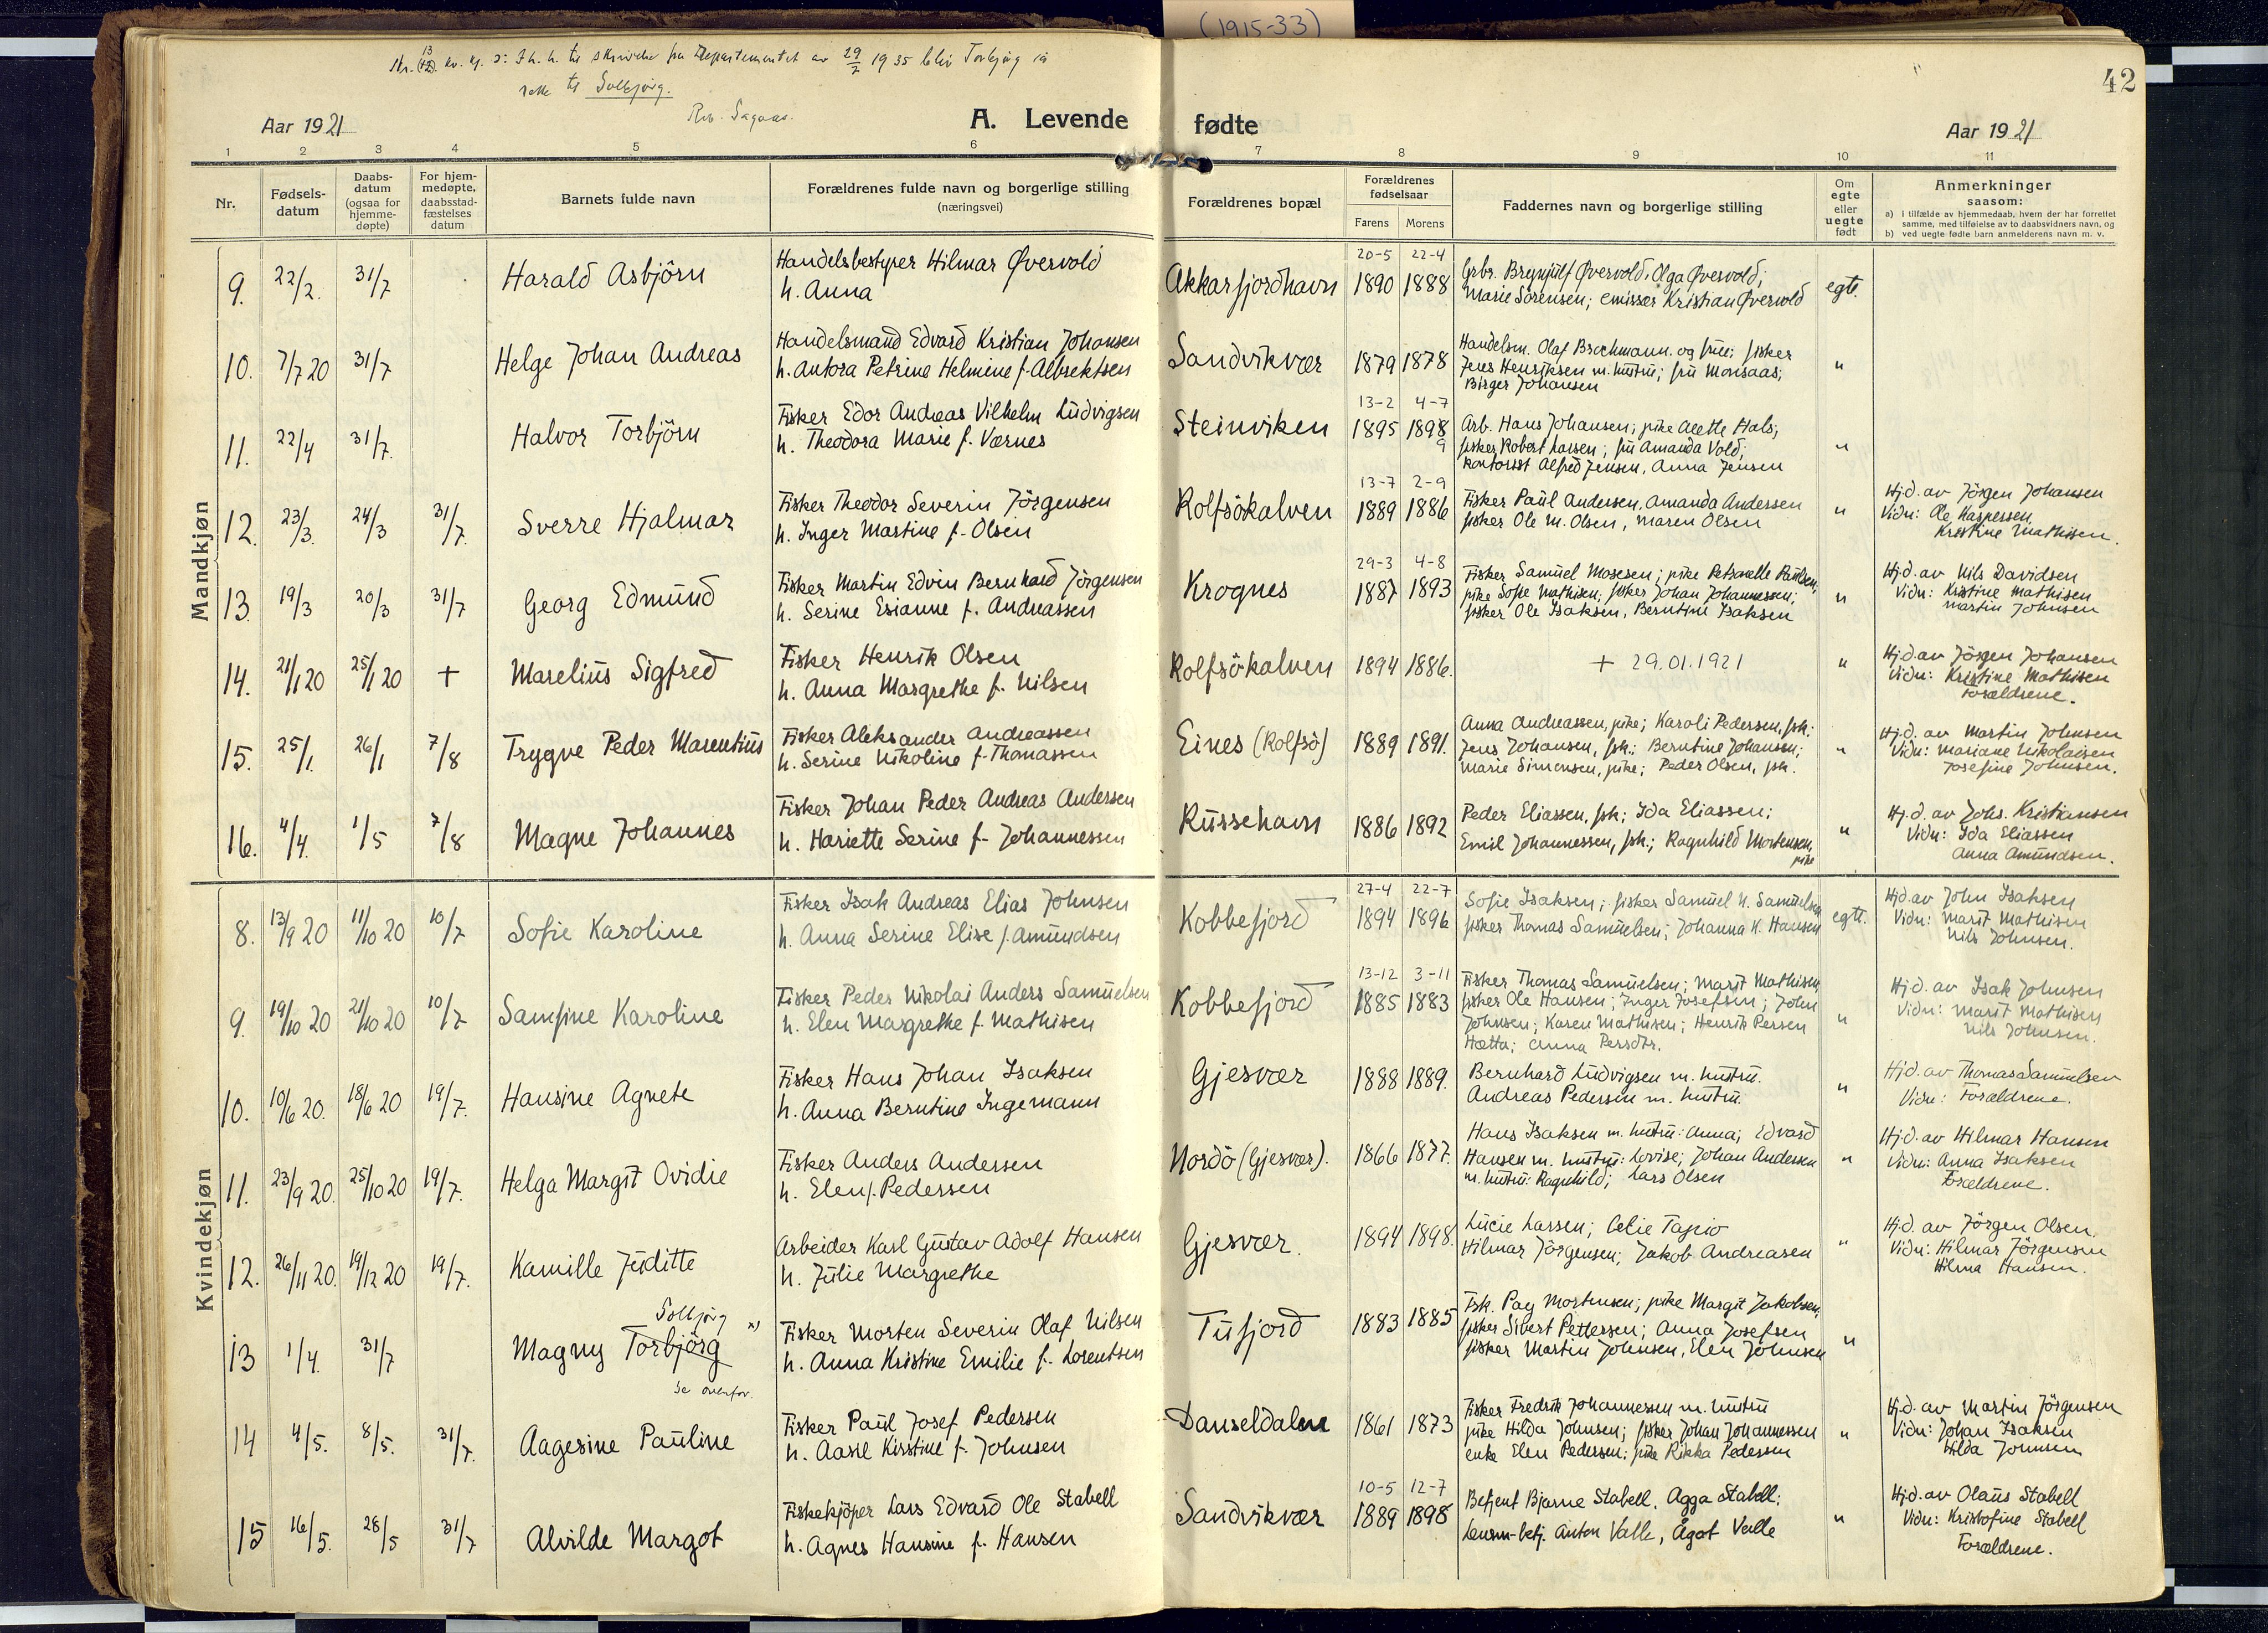 (1915-33)
42
til skrivelse fra Departementet av 29/7 1935 blir Torbjørg
til Solbjørg.
Aar 1921
A. Levende fødte
Aar 1921
1 2 3 4 5 6 7 8 9 10 11
Nr.
Fødsels-
datum
Daabs-
datum
(ogsaa for
hjemme-
døpte)
For hjem-
medøpte,
daabsstad-
fæstelses
datum
Barnets fulde navn
Forældrenes fulde navn og borgerlige stilling
(næringsvei)
Forældrenes bopæl
Forældrenes
fødselsaar
Farens Morens
Faddernes navn og borgerlige stilling
Om
egte
eller
uegte
født
Anmerkninger
saasom:
a) i tilfælde av hjemmedaab, hvem der har forrettet
samme, med tilføielse av to daabsvidners navn, og
b) ved uegte fødte barn anmelderens navn m. v.
Mandkjøn
9. 22/2. 31/7 Harald Asbjörn
Handelsbestyrer Hilmar Øvervold
h. Anna
Akkarfjordhavn
20-5 22-4
1890 1888
Brynjulf Øvervold, Olga Øvervold;
Marie Sörensen; emissær Kristian Øvervold
egte.
10. 7/7 20 31/7 Helge Johan Andreas
Handelsmand Edvard Kristian Johansen
h. Antora Petrine Helmine f. Albrektsen
Sandvikvær
1879 1878
Handelsm. Olaf Brochmann og frue; fisker
Jens Henriksen m. hustru; fru Monsaas;
Birger Johansen
"
11. 22/4 31/7. Halvor Torbjörn
Fisker Edor Andreas Vilhelm Ludvigsen
h. Theodora Marie f. Værnes
Steinviken
13-2 4-7
1895 1898
9
Arb. Hans Johansen; pike Alette Hals;
fisker Robert Larsen; fru Amanda Vold;
kontorist Alfred Jensen, Anna Jensen
"
12. 23/3. 24/3 31/7. Sverre Hjalmar
Fisker Theodor Severin Jörgensen
h. Inger Martine f. Olsen
Rolfsökalven
13-7 2-9
1889 1886
Fisker Paul Andersen, Amanda Andersen
fisker Ole M. Olsen, Maren Olsen
"
Hj.d. av Jörgen Johansen
Vidn: Ole Kaspersen,
Kristine Mathisen.
13. 19/3 20/3 31/7 Georg Edmund
Fisker Martin Edvin Bernhard Jörgensen
h. Serine Esianne f. Andreassen
Krognes
29-3 4-8
1887 1893
Fisker Samuel Mosesen; pike Petronelle Paulsen;
pike Sofie Mathisen; fisker Johan Johannessen;
fisker Ole Isaksen, Berntine Isaksen
"
Hj.d. av Nils Davidsen
Vidn: Kristine Mathisen
Martin Johnsen
14. 21/1 20 25/1 20 + Marelius Sigfred
Fisker Henrik Olsen
h. Anna Margrethe f. Nilsen
Rolfsökalven
1894 1886.
+ 29.01.1921
"
Hj.d. av Jörgen Johansen
Vidn: Kristine Mathisen
Forældrene.
15. 25/1. 26/1 7/8 Trygve Peder Marentius
Fisker Aleksander Andreassen
h. Serine Nikoline f. Thomassen
Eines (Rolfsö)
1889 1891.
Anna Andreassen, pike; Karoli Pedersen, fsk.;
Jens Johansen, fsk.; Berntine Johansen;
Marie Simensen, pike; Peder Olsen, fsk.
"
Hj.d. av Martin Johnsen
Vidn: Mariane Nikolaisen
Josefine Johnsen.
16. 4/4. 1/5 7/8 Magne Johannes
Fisker Johan Peder Andreas Andersen
h. Hariette Serine f. Johannessen
Russehavn
1886 1892
Peder Eliassen, fsk; Ida Eliassen;
Emil Johannessen, fsk.; Ragnhild Mortensen,
pike
"
Hj.d. av Johs. Kristiansen
Vidn: Ida Eliassen
Anna Amundsen.
Kvindekjøn
8. 13/9 20 11/10 20 10/7 Sofie Karoline
Fisker Isak Andreas Elias Johnsen
h. Anna Serine Elise f. Amundsen
Kobbefjord
27-4 22-7
1894 1896
Sofie Isaksen; fisker Samuel N. Samuelsen
fisker Thomas Samuelsen; Johanna K. Hansen
egte.
Hj.d. av John Isaksen
Vidn: Marit Mathisen
Nils Johnsen.
9. 19/10 20 21/10 20 10/7 Samsine Karoline
Fisker Peder Nikolai Anders Samuelsen
h. Elen Margrethe f. Mathisen
Kobbefjord
13-12 3-11
1885 1883
Fisker Thomas Samuelsen; Marit Mathisen
fisker Ole Hansen; Inger Josefsen; John
Johnsen; Karen Mathisen; Henrik Persen
Hætta; Anna Persdtr.
"
Hj.d. av Isak Johnsen
Vidn: Marit Mathisen
Nils Johnsen.
10. 10/6 20. 18/6 20 19/7. Hansine Agnete
Fisker Hans Johan Isaksen
h. Anna Berntine Ingemann
Gjesvær
1888 1889.
Bernhard Ludvigsen m. hustru.
Andreas Pedersen m. hustru.
"
Hj.d. av Thomas Samuelsen
Vidn: Forældrene.
11. 23/9 20. 25/10 20 19/7. Helga Margit Ovidie
Fisker Anders Andersen
h. Elen f. Pedersen
Nordö (Gjesvær).
1866 1877.
Hans Isaksen m. hustru: Anna; Edvard
Hansen m. hustru: Lovise; Johan Andersen
m. hustru: Ragnhild; Lars Olsen
"
Hj.d. av Hilmar Hansen
Vidn: Anna Isaksen
Forældrene.
12. 26/11 20. 19/12 20 19/7. Kamille Juditte
Arbeider Karl Gustav Adolf Hansen
h. Julie Margrethe
Gjesvær.
1894 1898.
Lucie Larsen; Celie Tapio
Hilmar Jörgensen; Jakob Andreasen
"
Hj.d. av Jörgen Olsen.
Vidn: Hilmar Jörgensen
Hilma Hansen.
Solbjörg x)
13 1/4. 31/7 Magny Torbjörg
se ovenfor.
Fisker Morten Severin Olaf Nilsen
h. Anna Kristine Emilie f. Lorentsen
Tufjord
1883 1885
Fsk. Pay Mortensen; pike Margit Jakobsen,
fisker Sibert Pettersen; Anna Josefsen
fisker Martin Johnsen, Elen Johnsen
"
14 4/5. 8/5. 31/7. Aagesine Pauline
Fisker Paul Josef Pedersen
h. Aasel Kirstine f. Johnsen
Danseldalen
1861 1873
Fisker Fredrik Johannessen m. hustru
pike Hilda Johnsen; fisker Johan Johannessen
enke Elen Pedersen; pike Rikka Pedersen
"
Hj.d. av Martin Jörgensen
Vidn: Johan Isaksen
Hilda Johnsen
15 16/5. 28/5 31/7 Alvilde Margot
Fiskekjöper Lars Edvard Ole Stabell
h. Agnes Hansine f. Hansen
Sandvikvær
10-5 12-7
1889 1898
Betjent Bjarne Stabell, Agga Stabell;
Lensm-betj. Anton Valle, Ågot Valle
"
Hj.d. av Olaus Stabell
Vidn: Kristofine Stabell
Forældrene.